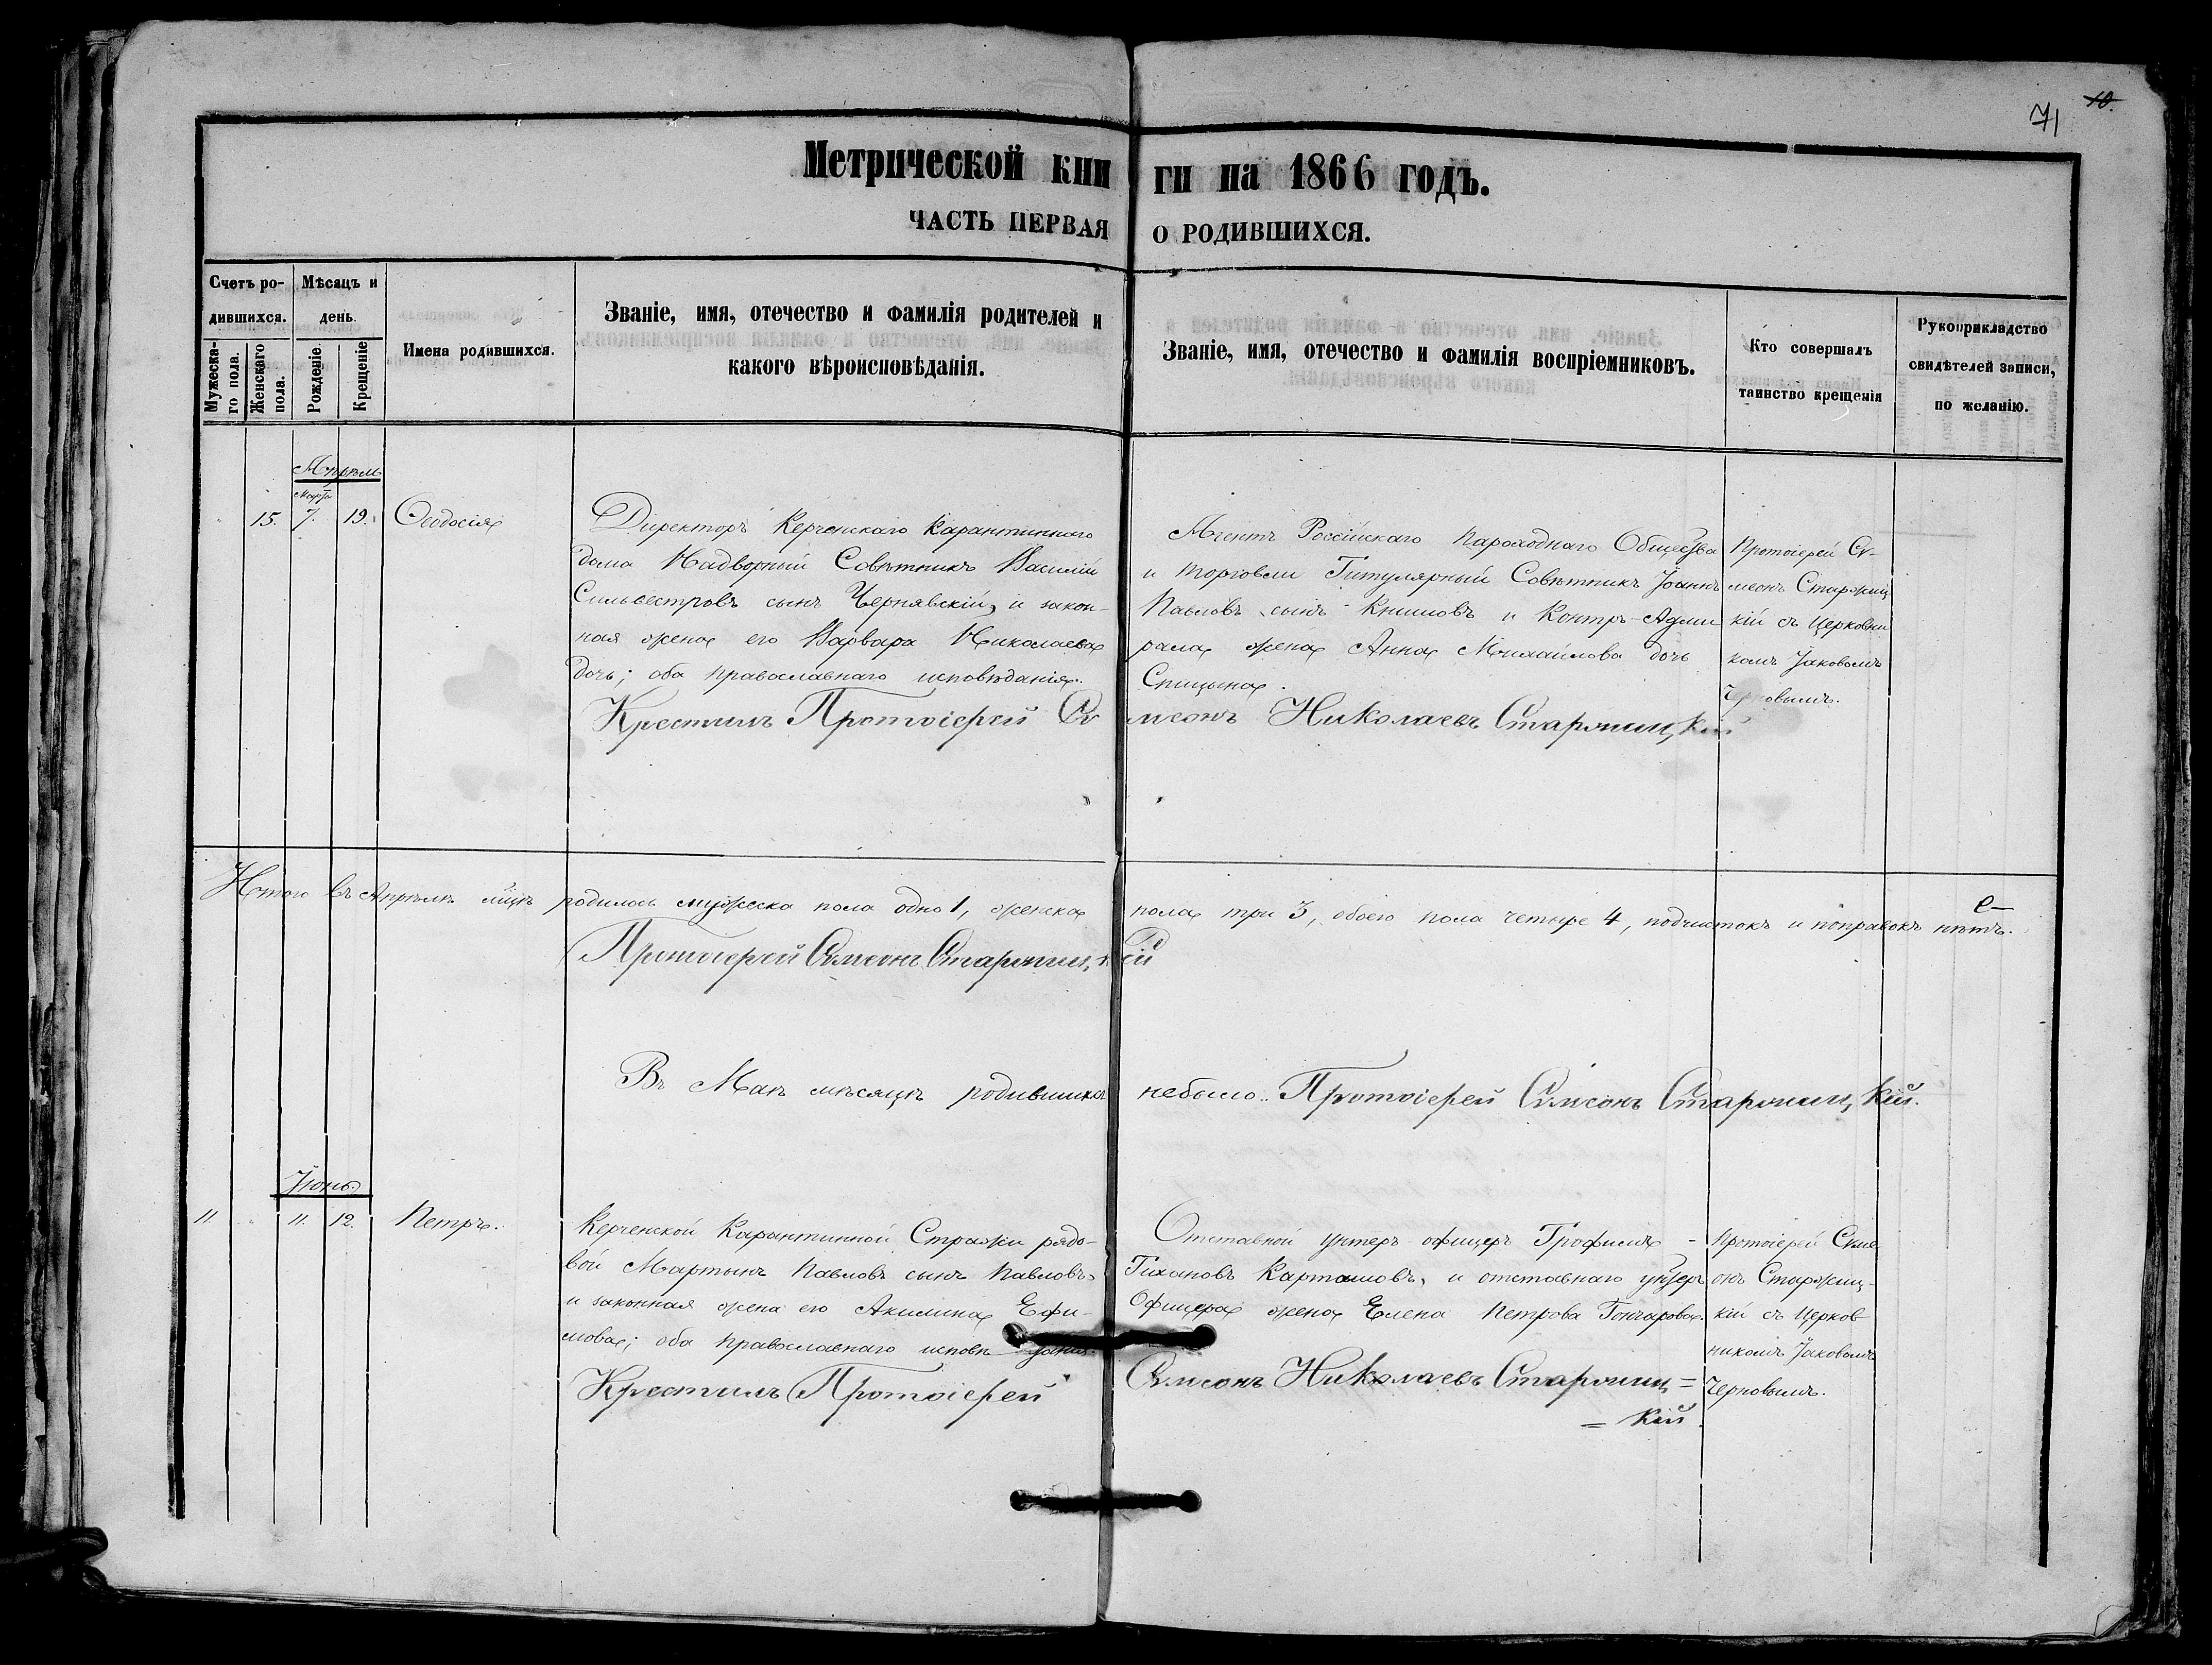 71 10.
Метрической книги на 1866 годъ.
ЧАСТЬ ПЕРВАЯ О РОДИВШИХСЯ.
Счетъ родившихся.
Мужескаго пола.
Женскаго пола.
Мѣсяцъ и день.
Рожденіе.
Крещеніе
Имена родившихся.
Званіе, имя, отечество и фамилія родителей и
какого вѣроисповѣданія.
Званіе, имя, отечество и фамилія воспріемниковъ.
Кто совершалъ
таинство крещенія
Рукоприкладство
свидѣтелей записи,
по желанію.
Апрѣль
Марта
15. 7. 19. Ѳеодосія
Директоръ Керченскаго Карантиннаго
дома Надворный Совѣтникъ Василій
Сильвестровъ сынъ Чернявскій, и закон-
ная жена его Варвара Николаева
дочь; оба православнаго исповѣданія.
Агентъ Россійскаго Пароходнаго Общества
и торговли Титулярный Совѣтникъ Іоаннъ
Павловъ сынъ Книповъ и Контръ-Адми
рала жена Анна Михайлова дочь
Спицына.
Протоіерей Сѵ-
меонъ Старжиц
кій съ Церковни
комъ Іаковомъ
Черновымъ.
Крестилъ Протоіерей Сѵмеонъ Николаевъ Старжицкій
Итого въ Апрѣлѣ мцѣ родилось мужеска пола одно 1, женска пола три 3, обоего пола четыре 4, подчистокъ и поправокъ нѣтъ.
Протоіерей Сѵмеонъ Старжицкій
Въ Маѣ мѣсяцѣ родившихся небыло. Протоіерей Сѵмеонъ Старжицкій.
Іюнь.
11. 11. 12. Петръ.
Керченской Карантинной Стражи рядо-
вой Мартынъ Павловъ сынъ Павловъ,
и законная жена его Акилина Ефи-
мова; оба православнаго исповѣданія.
Отставной унтеръ-офицеръ Трофимъ
Тихановъ Карташовъ, и отставнаго унтеръ
Офицера жена Елена Петрова Гончарова.
Протоіерей Сѵме
онъ Старжиц-
кій съ Церков
никомъ Іаковомъ
Черновымъ.
Крестилъ Протоіерей Сѵмеонъ Николаевъ Старжиц=
=кій.